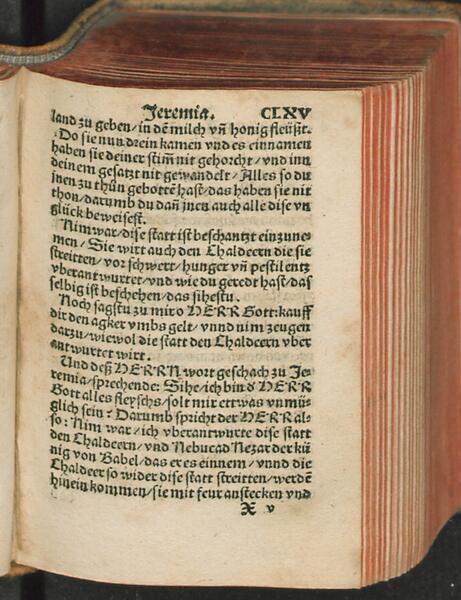 Jeremia. CLXV
land zu geben/in dẽ milch vñ honig fleüßt.
Do sie nun drein kamen vnd es einnamen
haben sie deiner stim̃ nit gehorcht/vnd inn
deinem gesatzt nit gewandelt/Alles so du
jnen zu thůn gebottẽ hast/das haben sie nit
thon/darumb du dañ jnen auch alle dise vn
glück beweisest.
Nim war/dise statt ist beschantzt einzune-
men/Sie wirt auch den Chaldeern die sie
streitten/vor schwert/hunger vñ pestilentz
vberantwurtet/vnd wie du geredt hast/das
selbig ist beschehen/das sihestu.
Noch sagstu zu mir o HERR Gott: kauff
dir den agker vmbs gelt/vnnd nim zeugen
darzu/wiewol die statt den Chaldeern vber
antwurtet wirt.
Und deß HERRN wort geschach zu Je-
remia/sprechende: Sihe/ich bin d̃ HERR
Gott alles fleyschs/solt mir ettwas vn mü-
glich sein? Darumb spricht der HERR al-
so: Nim war/ich vberantwurte dise statt
den Chaldeern/vnd Nebucad Nezar der kü
nig von Babel/das er es einnem/vnnd die
Chaldeer so wider dise statt streitten/werdẽ
hinein kommen/sie mit feur anstecken vnd
X v